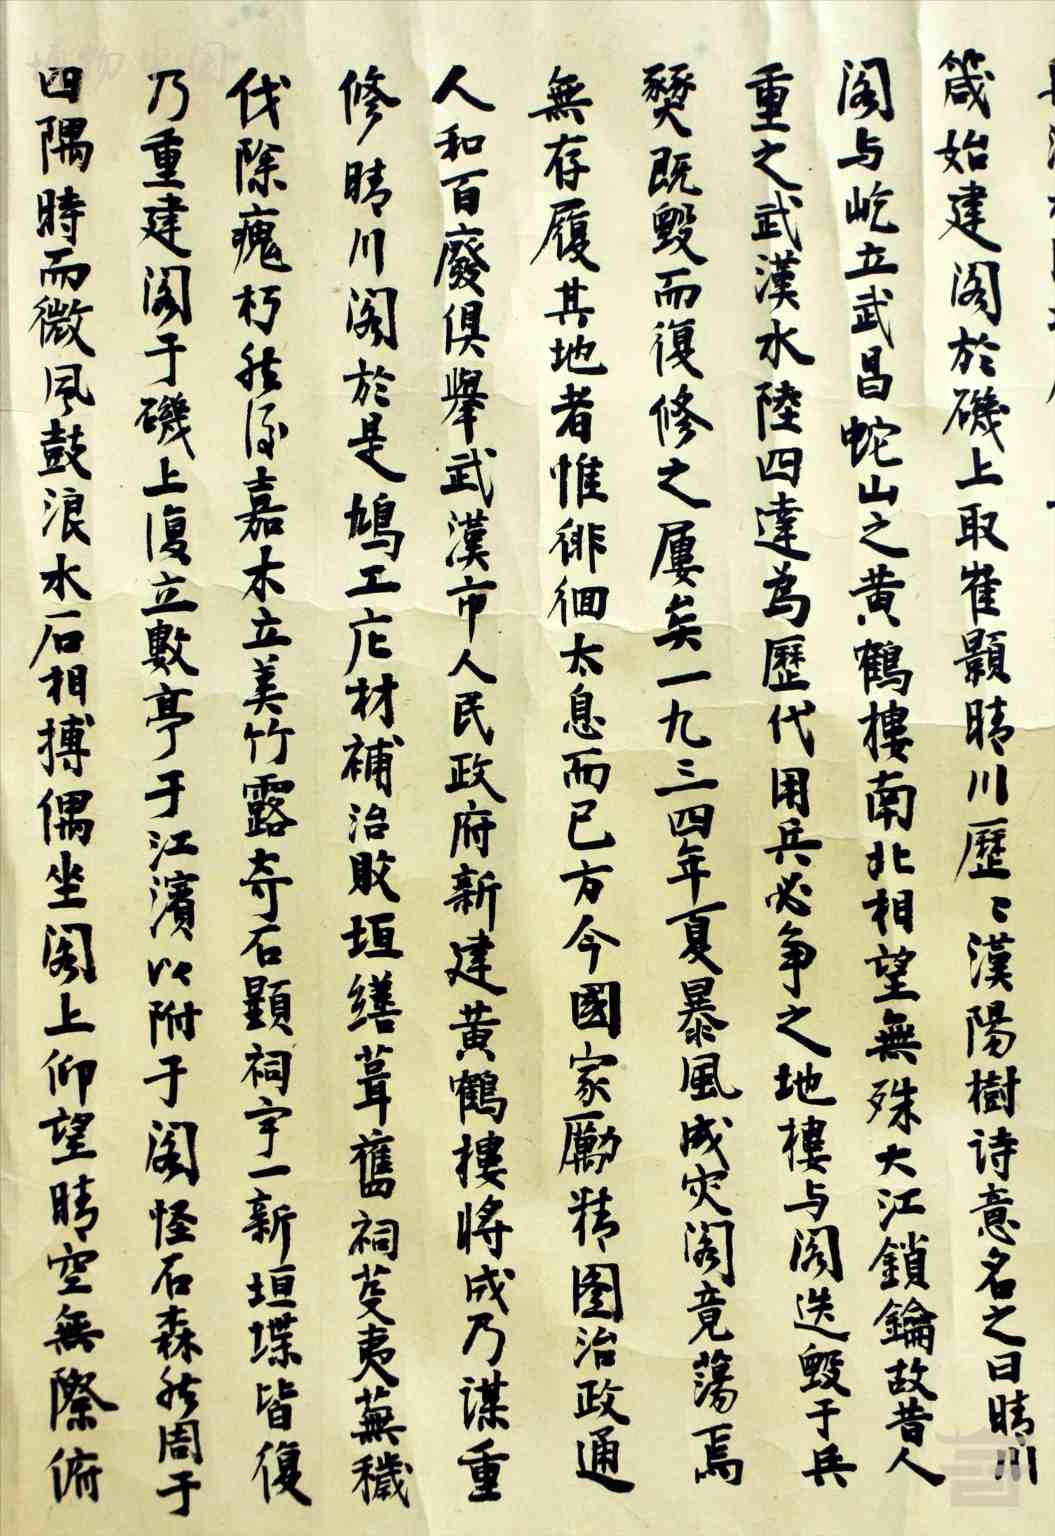 箴始建阁於磯上取崔顥晴川歷〻漢陽樹诗意名之曰晴川
阁与屹立武昌蛇山之黄鶴樓南北相望無殊大江鎖鑰故昔人
重之武漢水陸四達為歷代用兵必争之地樓与阁迭毀于兵
燹既毀而復修之屢矣一九三四年夏暴風成灾阁竟蕩焉
無存履其地者惟徘徊太息而已方今國家勵精图治政通
人和百廢俱舉武漢市人民政府新建黄鶴樓將成乃谋重
修晴川阁於是鳩工庀材補治敗垣繕葺舊祠芟夷蕪穢
伐除瘣朽然後嘉木立美竹露奇石顯祠宇一新垣堞皆復
乃重建阁于磯上復立數亭于江濱以附于阁怪石森然周于
四隅時而微风鼓浪水石相搏偶坐阁上仰望晴空無際俯
博物中国